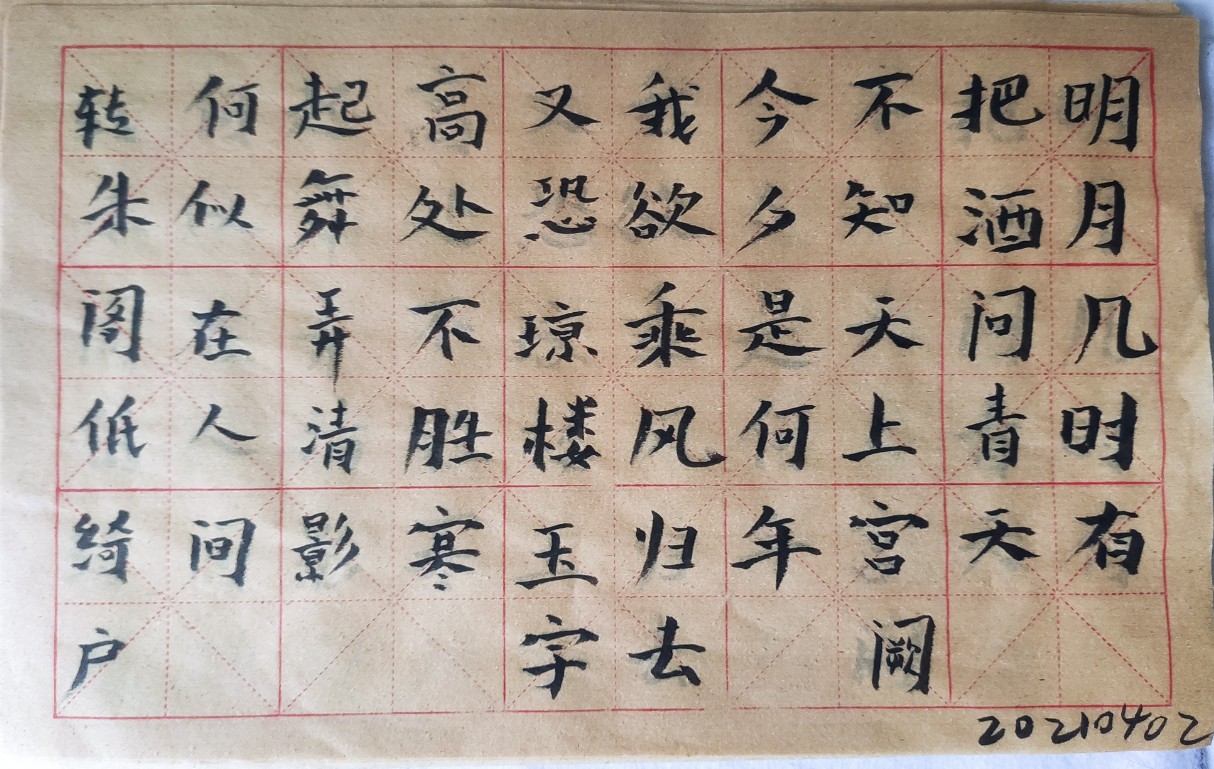 明月几时有
把酒问青天
不知天上宫阙
今夕是何年
我欲乘风归去
又恐琼楼玉宇
高处不胜寒
起舞弄清影
何似在人间
转朱阁低绮户
20210402